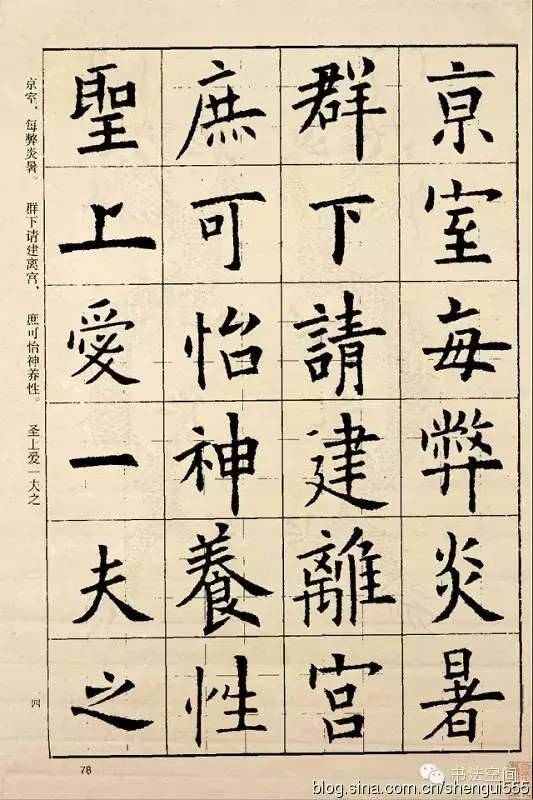 京室每弊炎暑
群下請建離宮
庶可怡神養性
聖上愛一夫之
京室，每弊炎暑。 群下请建离宫， 庶可怡神养性。 圣上爱一夫之
四
78
书法空间
blog.sina.com.cn/shengui555